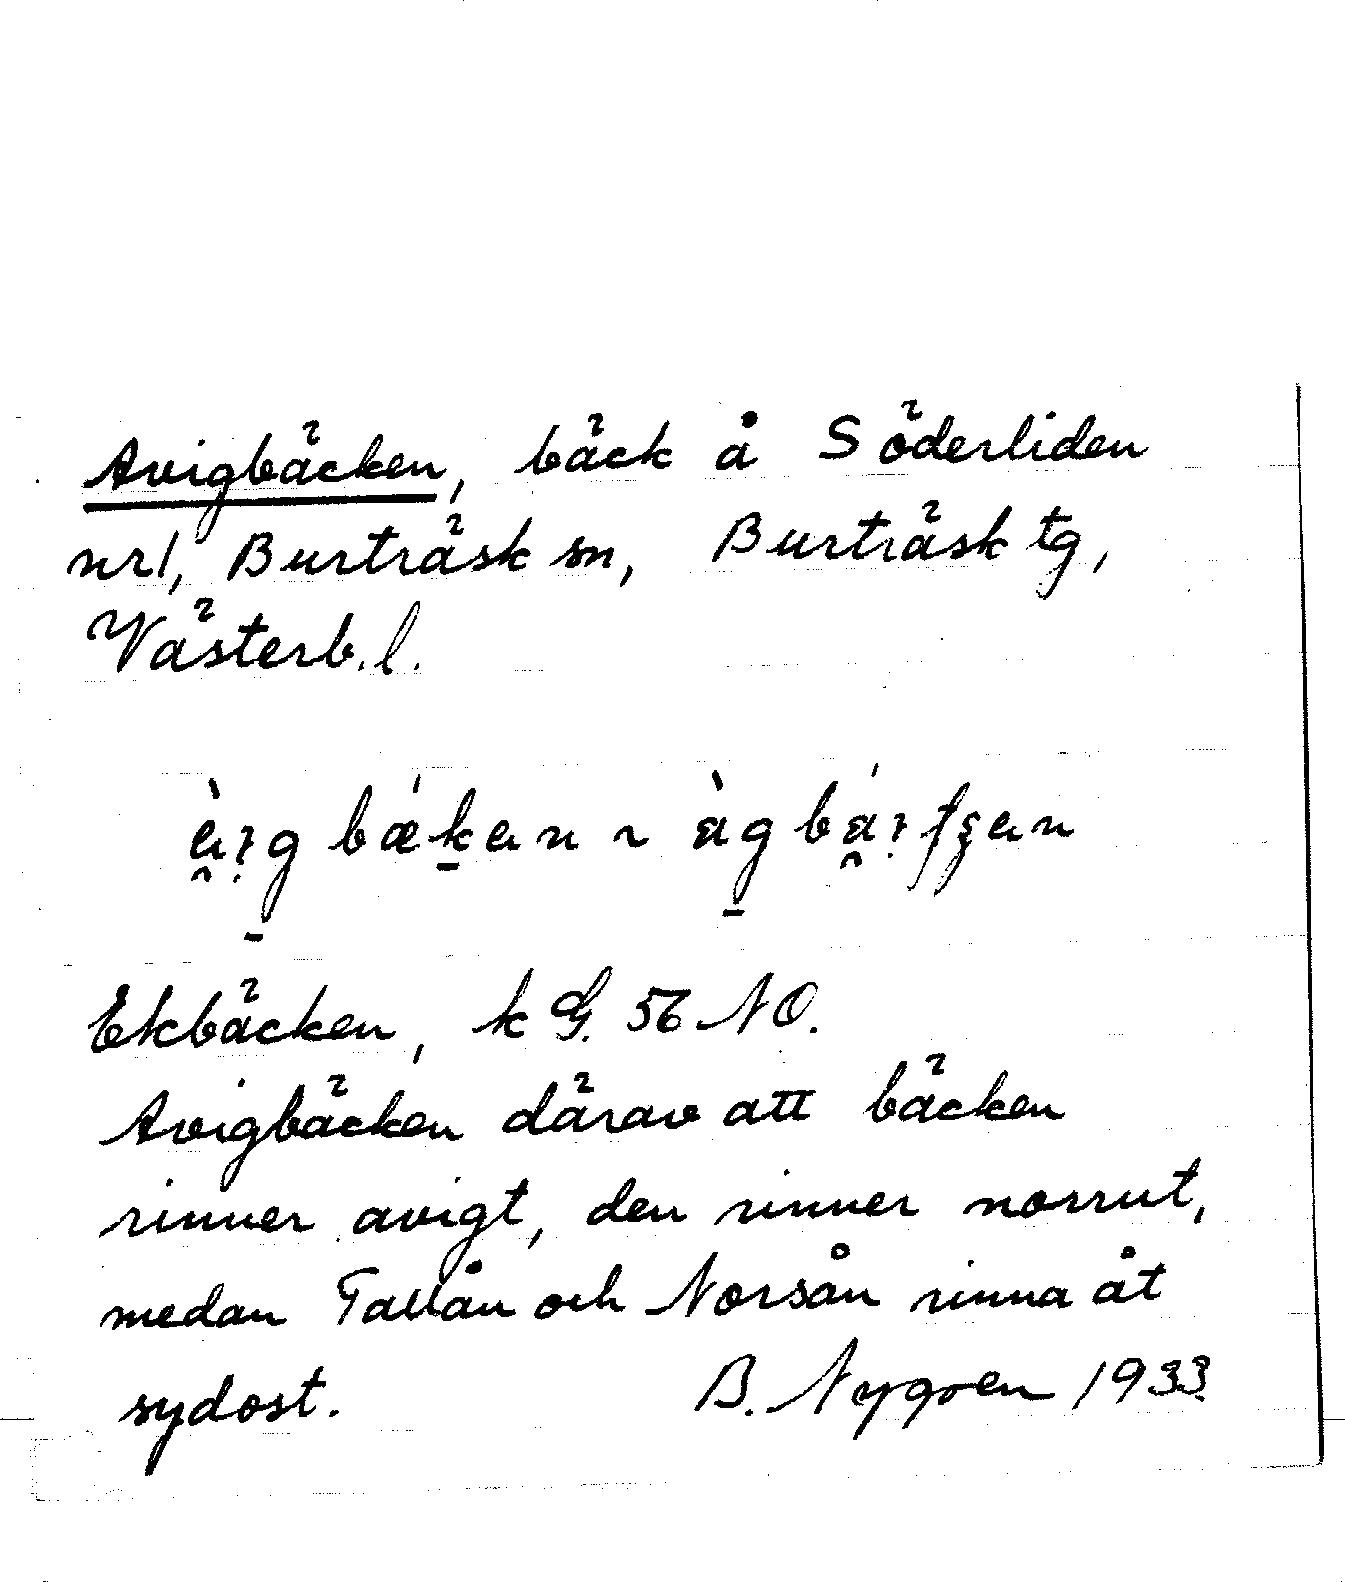 Avigbäcken, bäck å Söderliden
nr1, Burträsk sn, Burträsk tg,
Västerb. l.
Ekbäcken, k G. 56 NO.
Avigbäcken därav att bäcken
rinner avigt, den rinner norrut,
medan Tallån och Norsån rinna åt
sydost. B. Nygren 1933